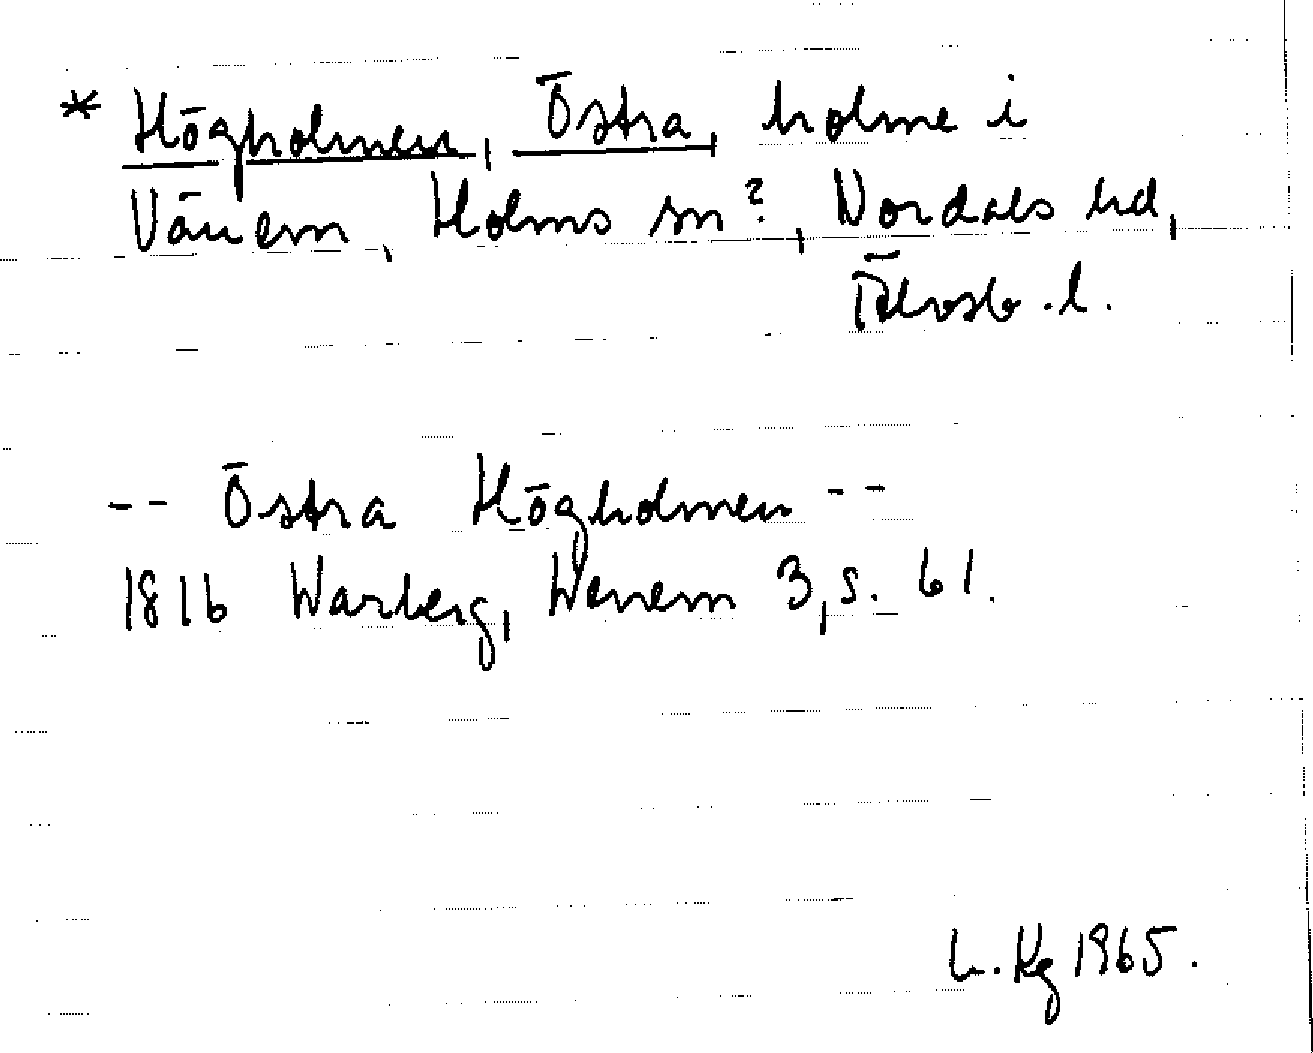 * Högholmen, Östra, holme i
Vänern, Holms sn?, Nordals hd,
Älvsb.l.
-- Östra Högholmen --
1816 Warberg, Wenern 3, s. 61.
L. Kg 1965.